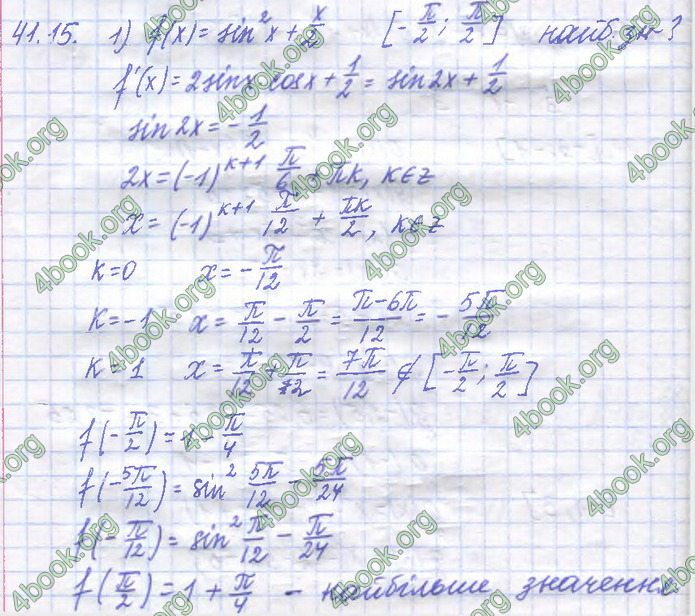 41.15. 1) f(x) = sin²x + x/2 [-π/2; π/2] найб. зн?
f'(x) = 2sinx cosx + 1/2 = sin2x + 1/2
sin2x = -1/2
2x = (-1)^(k+1) π/6 + πk, k∈z
x = (-1)^(k+1) π/12 + πk/2, k∈z
k=0 x = -π/12
k=-1 x = π/12 - π/2 = (π-6π)/12 = -5π/12
k=1 x = π/12 + π/2 = 7π/12 ∉ [-π/2; π/2]
f(-π/2) = 1 - π/4
f(-5π/12) = sin² 5π/12 - 5π/24
f(-π/12) = sin² π/12 - π/24
f(π/2) = 1 + π/4 - найбільше значення
4book.org